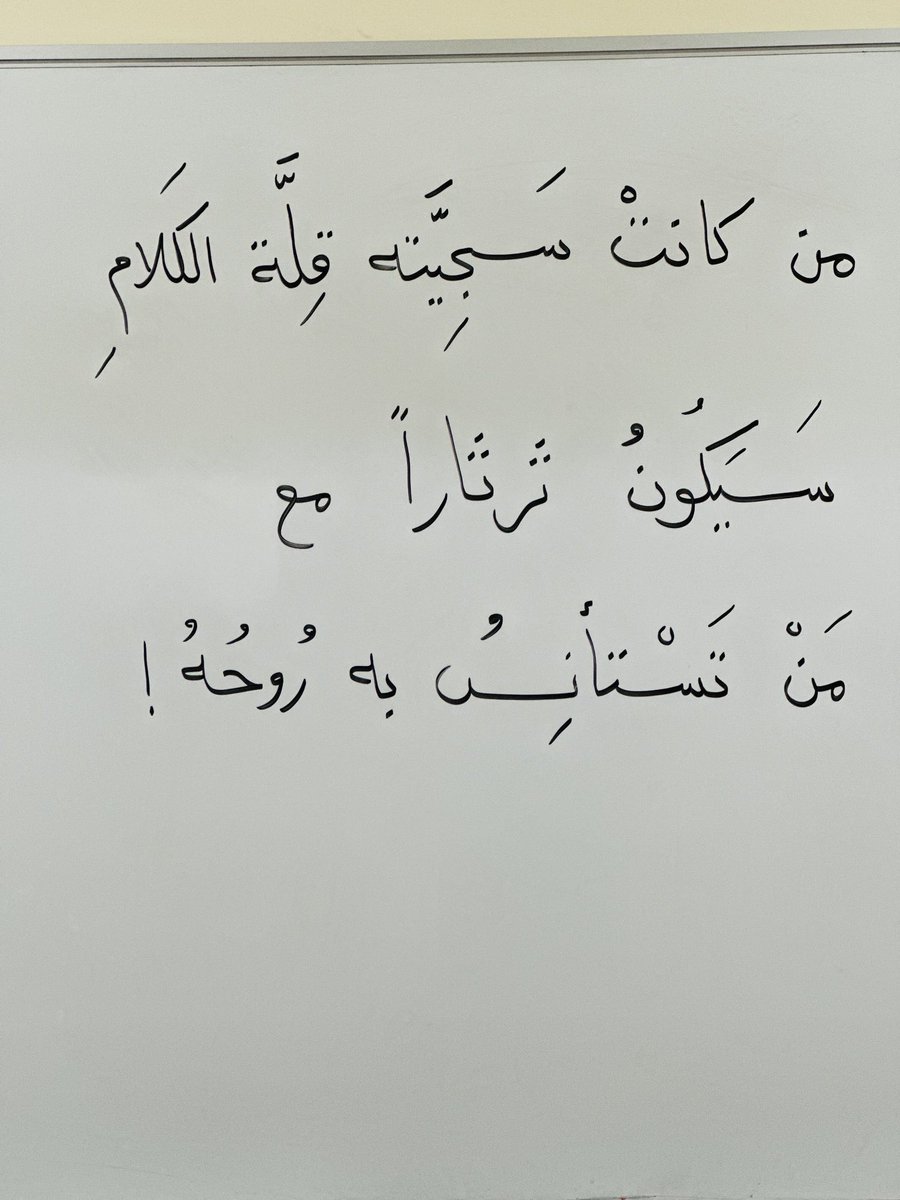 من كانتْ سَجِيَّته قِلَّة الكَلَامِ
سَيَكُونُ ثَرثَاراً مع
مَنْ تَسْتأنِسُ به رُوحُهُ !